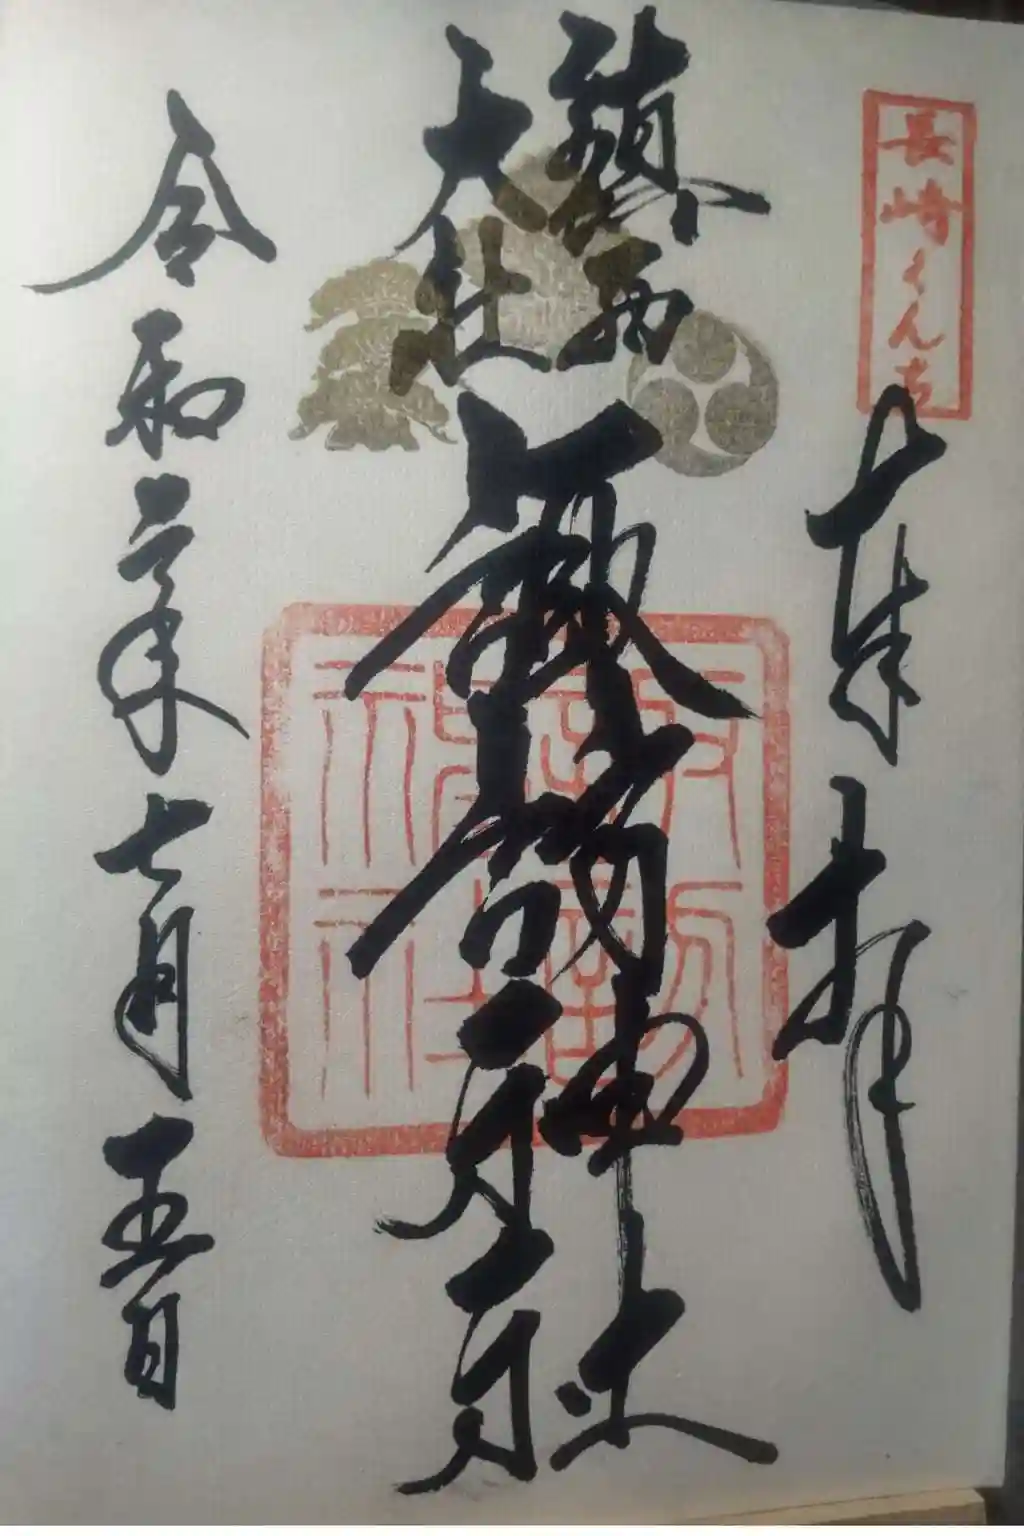 長崎くんち
奉拝
鎮西
大社
諏訪神社
諏訪神社
令和六年七月五日